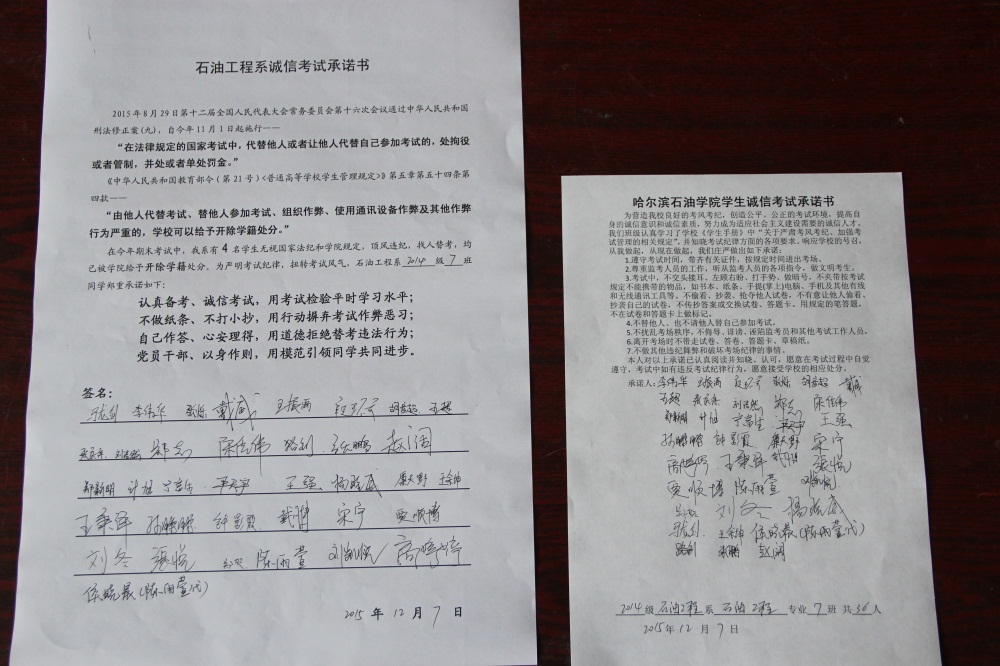 石油工程系诚信考试承诺书
2015年8月29日第十二届全国人民代表大会常务委员会第十六次会议通过中华人民共和国
刑法修正案(九),自今年11月1日起施行——
“在法律规定的国家考试中,代替他人或者让他人代替自己参加考试的,处拘役
或者管制,并处或者单处罚金。”
《中华人民共和国教育部令(第21号)<普通高等学校学生管理规定>》第五章第五十四条第
四款——
“由他人代替考试、替他人参加考试、组织作弊、使用通讯设备作弊及其他作弊
行为严重的,学校可以给予开除学籍处分。”
在今年期末考试中,我系有4名学生无视国家法纪和学院规定,顶风违纪,找人替考,均
已被学院给予开除学籍处分。为严明考试纪律,扭转考试风气,石油工程系2014级7班
同学郑重承诺如下:
认真备考、诚信考试,用考试检验平时学习水平;
不做纸条、不打小抄,用行动摒弃考试作弊恶习;
自己作答、心安理得,用道德拒绝替考违法行为;
党员干部、以身作则,用模范引领同学共同进步。
签名:
李伟华 戴威 王振西
郑志 陈信伟 路剑 张鹏 赵阔
郑新明 计旭 王强 杨晟威
王秉绎 孙鹏鹏 钟昱霞 宋宁 贾顺博
刘冬 张悦 陈雨萱
(陈雨萱代)
2015年12月7日
哈尔滨石油学院学生诚信考试承诺书
为营造我校良好的考风考纪,创造公平、公正的考试环境,提高自
身的诚信意识和诚信素质,努力成为适应社会主义建设需要的诚信人才。
我们班级认真学习了学校《学生手册》中“关于严肃考风考纪、加强考
试管理的相关规定”,并知晓考试纪律方面的各项要求。响应学校的号召,
从我做起,从现在做起。我们庄严做出如下承诺:
1.遵守考试时间,带齐有关证件,按规定时间进出考场。
2.尊重监考人员的工作,听从监考人员的各项指令,做文明考生。
3.考试中,不交头接耳、左顾右盼、打手势、做暗号,不夹带按考试
规定不能携带的物品,如书本、纸条、手提(掌上)电脑、手机及其他有线
和无线通讯工具等。不偷看、抄袭、抢夺他人试卷,不有意让他人偷看、
抄袭自己的试卷。不传抄答案或交换试卷、答题卡。用规定的笔答题,
不在试卷和答题卡上做标记。
4.不替他人、也不请他人替自己参加考试。
5.不扰乱考场秩序,不侮辱、诽谤、诬陷监考员和其他考试工作人员。
6.离开考场时不带走试卷、答卷、答题卡、草稿纸。
7.不做其他违纪舞弊和破坏考场纪律的事情。
本人对以上承诺已认真阅读并知晓、认可,愿意在考试过程中自觉
遵守,考试中如有违反考试纪律行为,愿意接受学校的相应处分。
承诺人:李伟华 王振西 戴威
郑志 陈信伟
郑新明 计旭 王强
孙鹏鹏 钟昱霞 宋宁
王秉绎 张悦
贾顺博 陈雨萱
刘冬 杨晟威
(陈雨萱代)
路剑 张鹏 赵阔
2014级石油工程系石油工程专业7班共30人
2015年12月7日